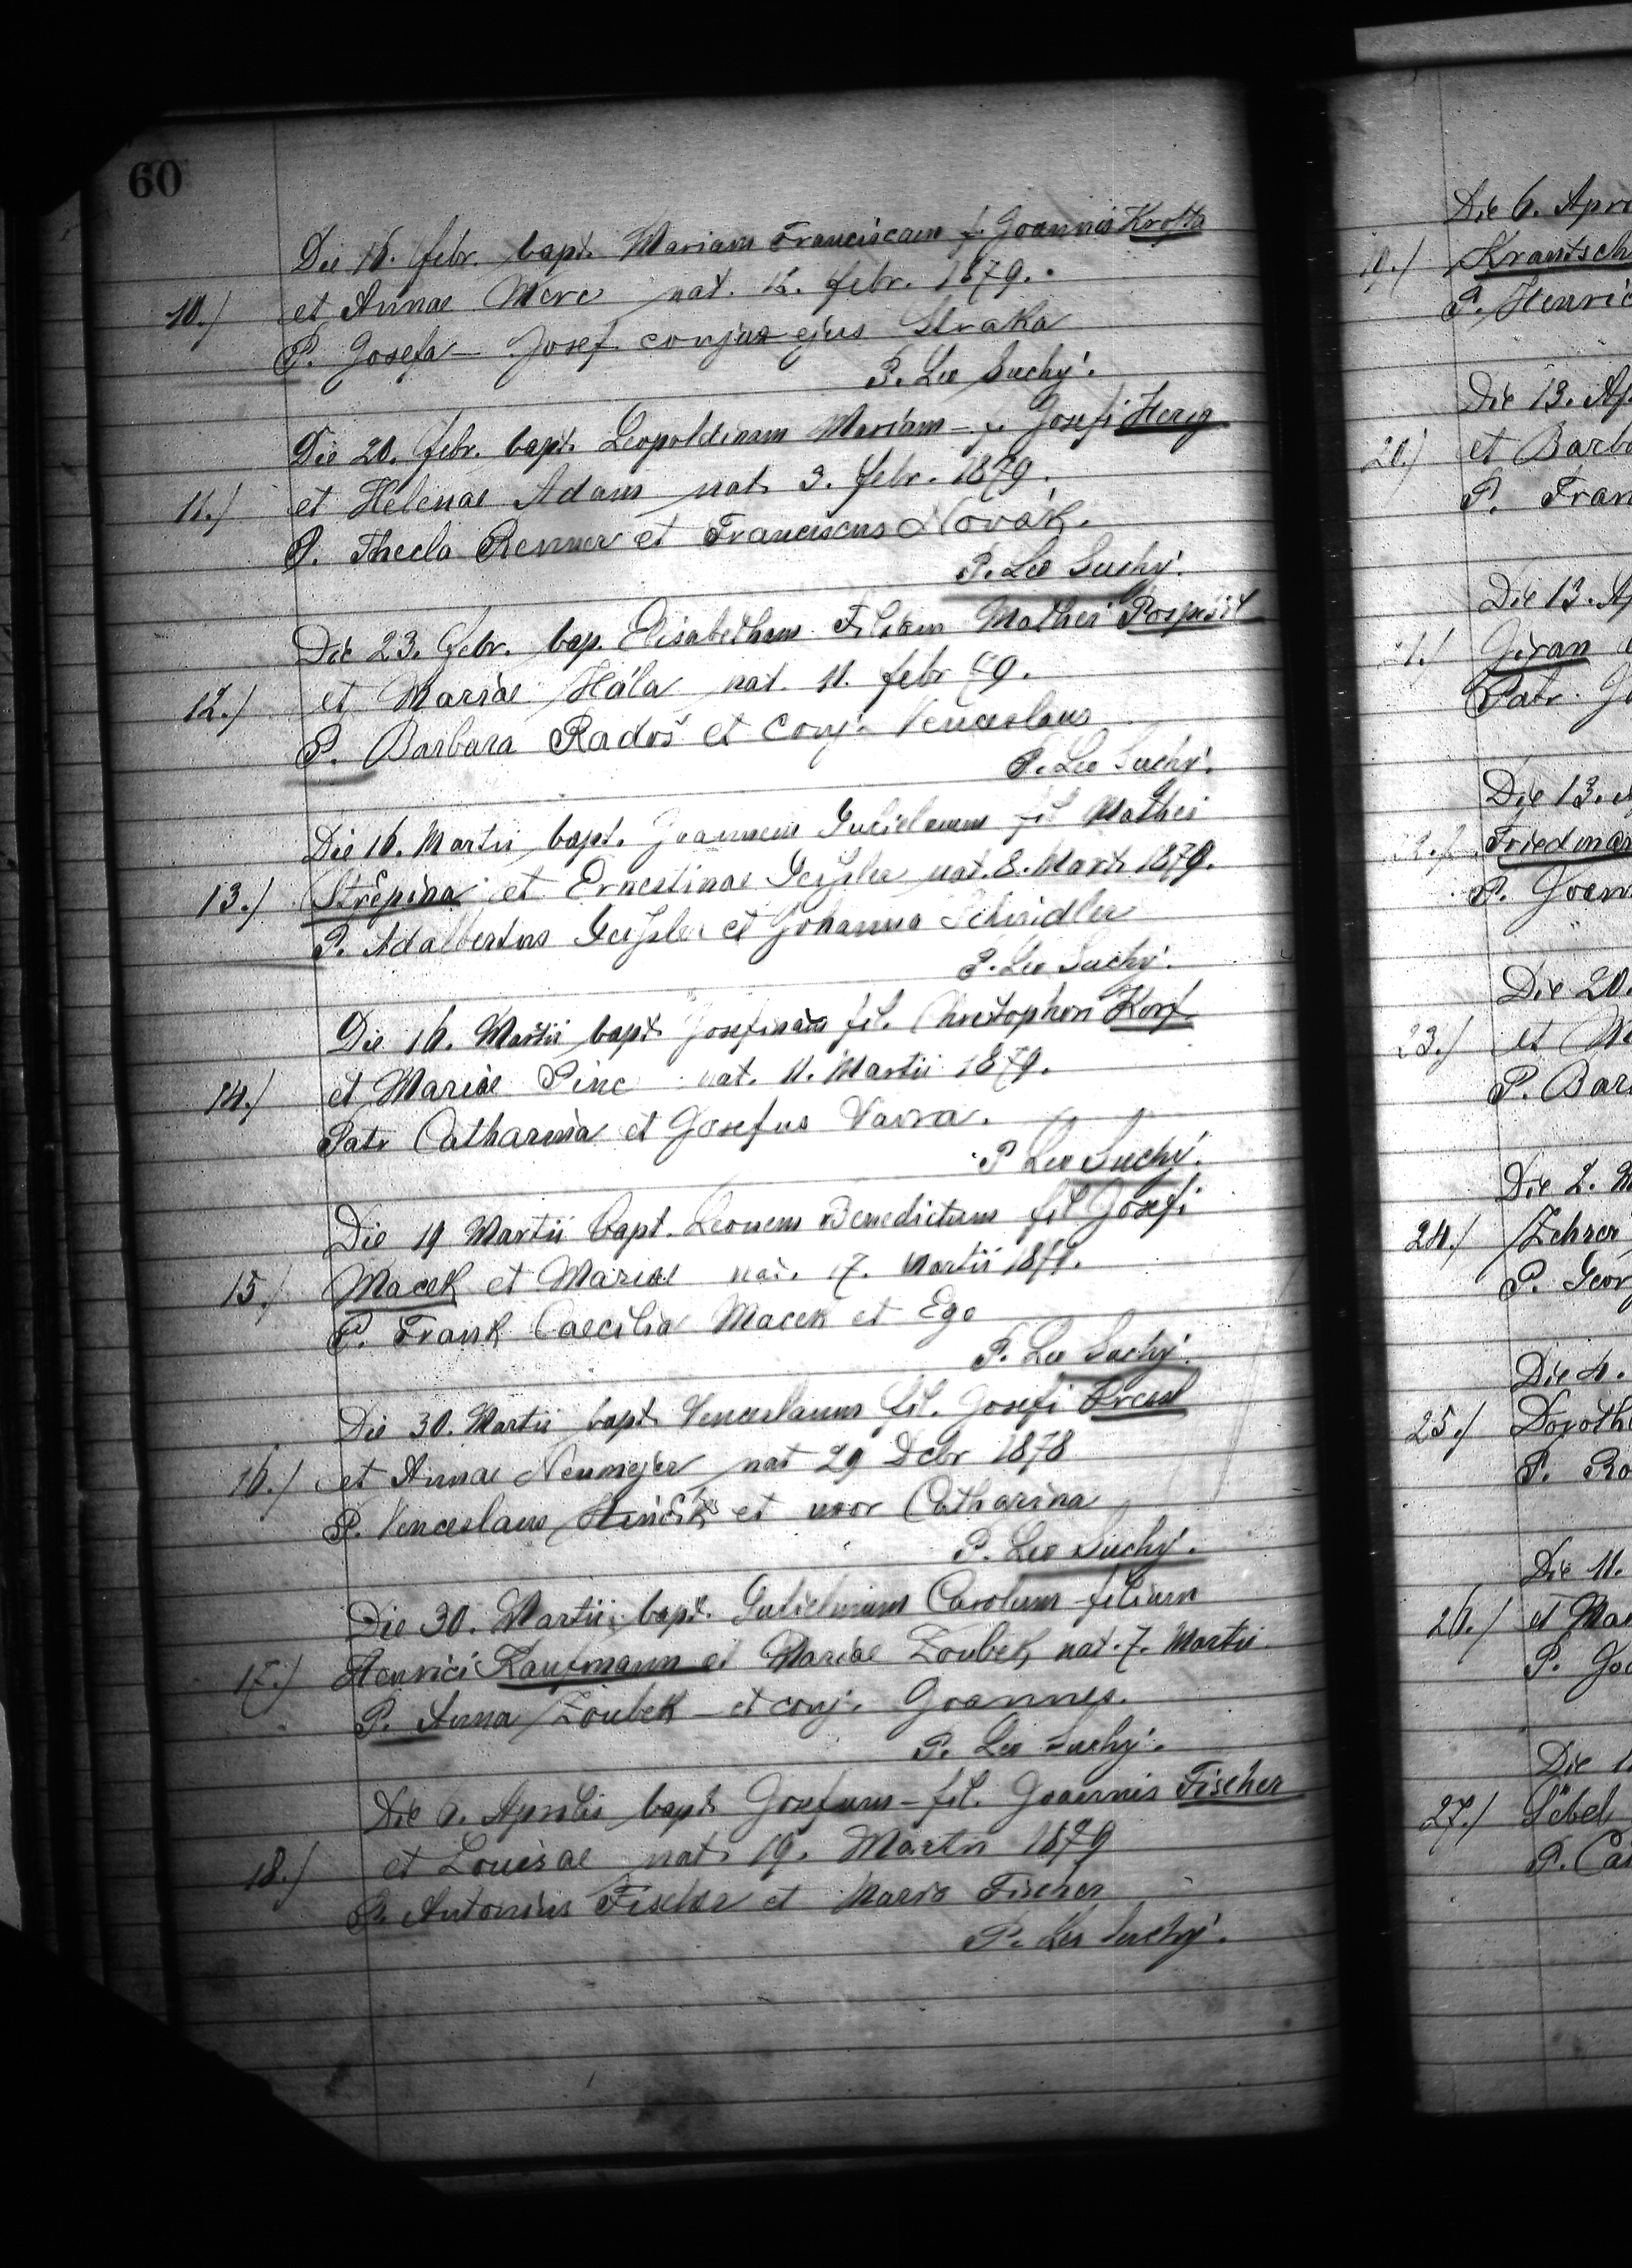 60
Die 16. febr. bapt. Mariam Franciscam f. Joannis Krofta
10.) et Annae Merc nat. 12. febr. 1879.
P. Josefa - Josef conjux ejus Straka
P. Leo Suchý.
Die 20. febr. bapt. Leopoldinam Mariam - f. Josefi Herzg
11.) et Helenae Adam nat. 3. febr. 1879.
P. Thecla Renner et Franciscus Novák.
P. Leo Suchý.
Die 23. febr. bap. Elisabetham Filiam Mathei Pospíšil
12.) et Mariae Hála nat. 11. febr 79.
P. Barbara Radoš et conj. Venceslaus
P. Leo Suchý.
Die 16. Martii bapt. Joannem Gulielmum fil Mathei
13.) Střepina et Ernestinae Geißler nat. 8. Marti 1879.
P. Adalbertus Geißler et Johanna Schindler
P. Leo Suchý.
Die 16. Martii bapt Josefinam fil. Christophori Korf
14.) et Mariae Pinc nat. 11. Martii 1879.
Patr Catharina et Josefus Vavra.
P Leo Suchý.
Die 19 Martii bapt. Leonem Benedictum fil Josefi
15.) Macek et Mariae nat. 17. Martii 1879.
P. Frank Caecilia Macek et Ego
P. Leo Suchý.
Die 30. Martii bapt. Venceslaum fil. Josefi
16.) et Annae Neumejer nat 29 Dcbr 1878
P. Venceslaus et uxor Catharina
P. Leo Suchý.
Die 30. Martii bapt. Gulielmum Carolum filium
17.) Henrici Kaufmann et Mariae Zoubek nat. 7. Martii
P. Anna Zoubek - et conj. Joannes.
P. Leo Suchý.
Die 6. Aprilis bapt. Josefum - fil. Joannis Fischer
18.) et Louisae nat. 19. Martii 1879
P. Antonius Fischer et Maria Fischer
P. Leo Suchý.
Die 6. Apri
19.) Krantsch
P. Henric
Die 13. Ap
20.) et Barb
P. Fran
Die 13. Ap
21.) Jiran
Patr. Jo
Die 13.
22.) Friedman
P. Joan
Die 20.
23.) et M
P. Bar
Die 2. M
24.) Zehrer
P. Geor
Die 4.
25.) Doroth
P. Ro
Die 11.
26.) et Mar
P. Jo
Die 1
27.) Söbel
P. Ca